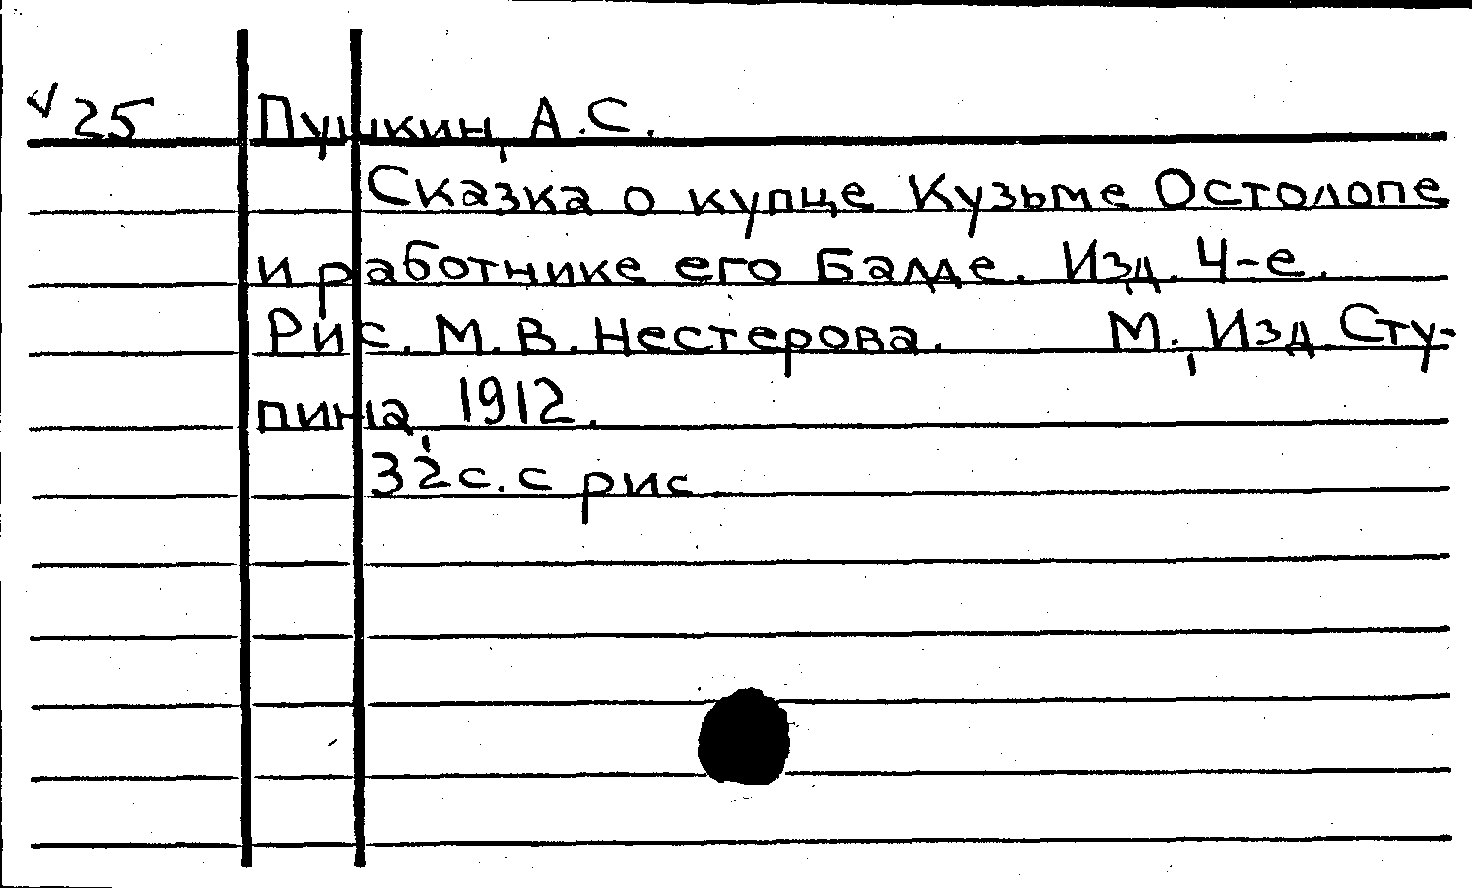 √ 25 Пушкин, А.С.
Сказка о купце Кузьме Остолопе
и работнике его Балде. Изд. 4-е.
Рис. М.В. Нестерова. М., Изд. Сту-
пина, 1912.
32 с. с рис